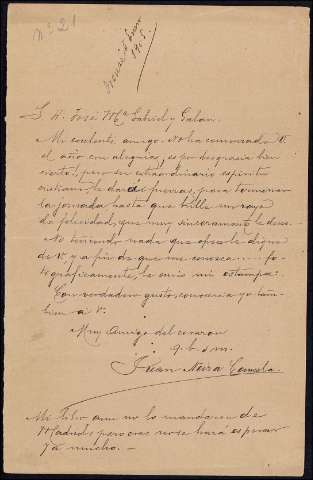 Nº 21
1905.
S. D. José Mª Gabriel y Galan.
Mi excelente amigo: No ha comenzado V.
el año con alegrias, es por desgracia bien
cierto; pero su extraordinario espíritu
cristiano, le dará fuerzas, para terminar
la jornada hasta que brille un rayo
de felicidad, que muy sinceramente le deseo.
No teniendo nada que ofrecer digno
de V, y a fin de que me conozca..... fo-
tográficamente, le envio mi estampa.
Con verdadero gusto, conoceria yo tam-
bien a V.
Muy amigo del corazon
q. b. s. m.
Juan Neira Cancela.
Mi libro aun no lo mandaron de
Madrid; pero creo no se hará esperar
ya mucho. —